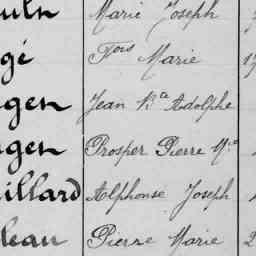 Marie Joseph
gé Fois Marie
gen Jean Ria Adolphe
gen Prosper Pierre Mie
illard Alphonse Joseph
leau Pierre Marie 2